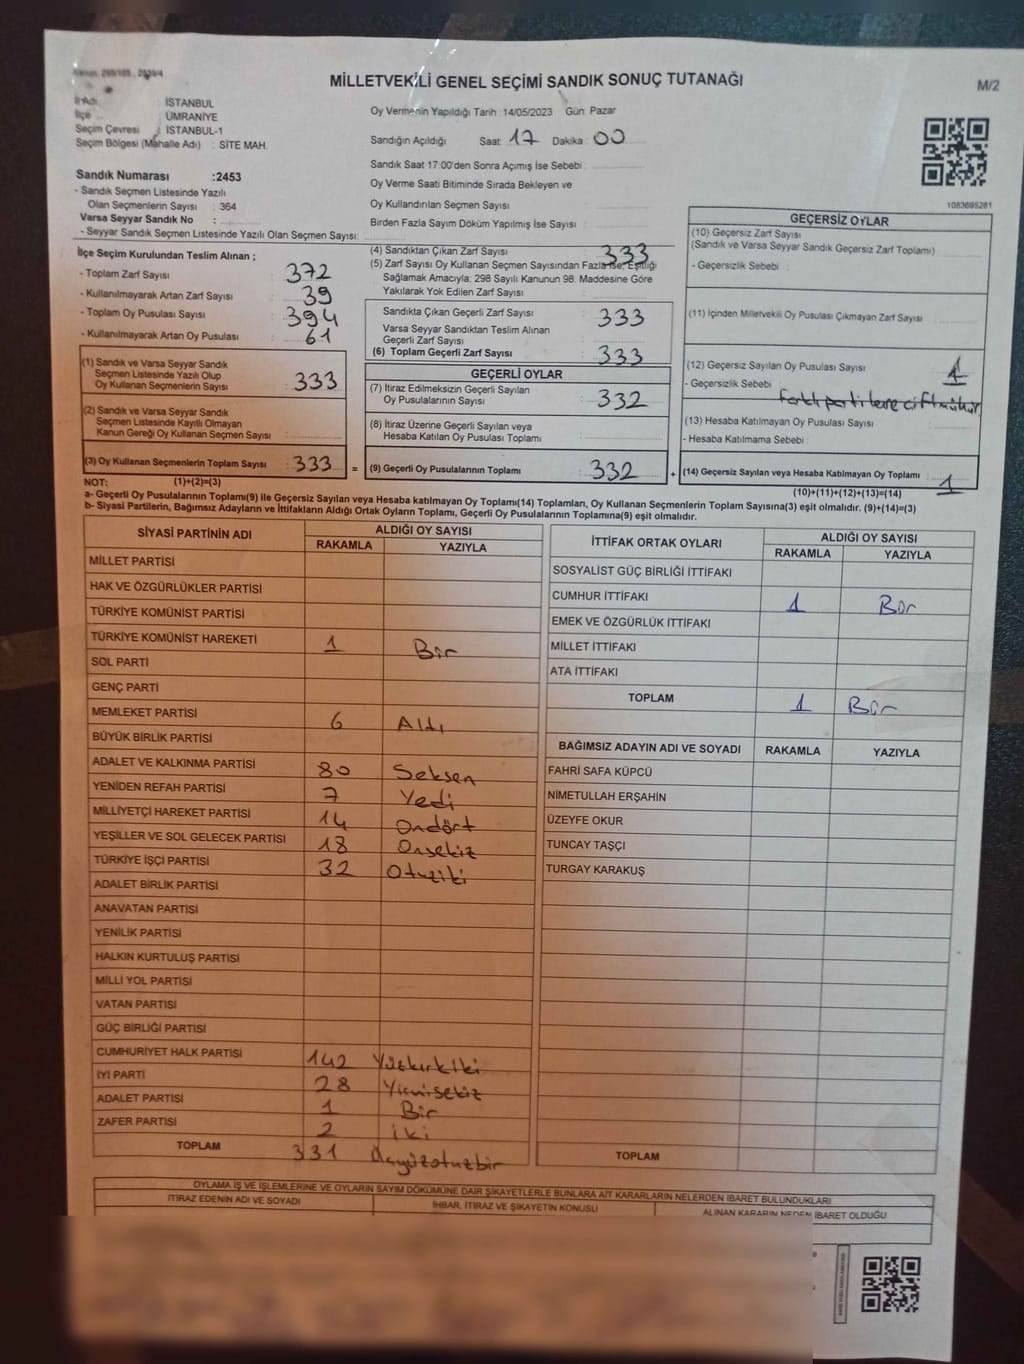 Kanun: 298/105 , 2839/4
MİLLETVEKİLİ GENEL SEÇİMİ SANDIK SONUÇ TUTANAĞI
M/2
İl Adı : İSTANBUL
İlçe : ÜMRANİYE
Seçim Çevresi : İSTANBUL-1
Seçim Bölgesi (Mahalle Adı) : SİTE MAH.
Oy Vermenin Yapıldığı Tarih :14/05/2023 Gün: Pazar
Sandığın Açıldığı Saat 17 Dakika 00
Sandık Saat 17:00'den Sonra Açımış İse Sebebi :
Oy Verme Saati Bitiminde Sırada Bekleyen ve
Oy Kullandırılan Seçmen Sayısı
Birden Fazla Sayım Döküm Yapılmış İse Sayısı :
Sandık Numarası :2453
- Sandık Seçmen Listesinde Yazılı
Olan Seçmenlerin Sayısı : 364
Varsa Seyyar Sandık No :
- Seyyar Sandık Seçmen Listesinde Yazılı Olan Seçmen Sayısı:
1083695281
İlçe Seçim Kurulundan Teslim Alınan ;
- Toplam Zarf Sayısı : 372
- Kullanılmayarak Artan Zarf Sayısı : 39
- Toplam Oy Pusulası Sayısı : 394
- Kullanılmayarak Artan Oy Pusulası : 61
(1) Sandık ve Varsa Seyyar Sandık
Seçmen Listesinde Yazılı Olup
Oy Kullanan Seçmenlerin Sayısı : 333
(2) Sandık ve Varsa Seyyar Sandık
Seçmen Listesinde Kayıtlı Olmayan
Kanun Gereği Oy Kullanan Seçmen Sayısı :
(3) Oy Kullanan Seçmenlerin Toplam Sayısı : 333 =
(4) Sandıktan Çıkan Zarf Sayısı 333
(5) Zarf Sayısı Oy Kullanan Seçmen Sayısından Fazla İse; Eşitliği
Sağlamak Amacıyla; 298 Sayılı Kanunun 98. Maddesine Göre
Yakılarak Yok Edilen Zarf Sayısı :
Sandıkta Çıkan Geçerli Zarf Sayısı : 333
Varsa Seyyar Sandıktan Teslim Alınan
Geçerli Zarf Sayısı :
(6) Toplam Geçerli Zarf Sayısı : 333
GEÇERLİ OYLAR
(7) İtiraz Edilmeksizin Geçerli Sayılan
Oy Pusulalarının Sayısı : 332
(8) İtiraz Üzerine Geçerli Sayılan veya
Hesaba Katılan Oy Pusulası Toplamı :
(9) Geçerli Oy Pusulalarının Toplamı : 332 +
GEÇERSİZ OYLAR
(10) Geçersiz Zarf Sayısı :
(Sandık ve Varsa Seyyar Sandık Geçersiz Zarf Toplamı)
- Geçersizlik Sebebi :
(11) İçinden Milletvekili Oy Pusulası Çıkmayan Zarf Sayısı :
(12) Geçersiz Sayılan Oy Pusulası Sayısı : 1
- Geçersizlik Sebebi : farklı partilere çift mühür
(13) Hesaba Katılmayan Oy Pusulası Sayısı :
- Hesaba Katılmama Sebebi :
(14) Geçersiz Sayılan veya Hesaba Katılmayan Oy Toplamı : 1
NOT: (1)+(2)=(3)
(10)+(11)+(12)+(13)=(14)
a- Geçerli Oy Pusulalarının Toplamı(9) ile Geçersiz Sayılan veya Hesaba katılmayan Oy Toplamı(14) Toplamları, Oy Kullanan Seçmenlerin Toplam Sayısına(3) eşit olmalıdır. (9)+(14)=(3)
b- Siyasi Partilerin, Bağımsız Adayların ve İttifakların Aldığı Ortak Oyların Toplamı, Geçerli Oy Pusulalarının Toplamına(9) eşit olmalıdır.
SİYASİ PARTİNİN ADI
ALDIĞI OY SAYISI
RAKAMLA YAZIYLA
MİLLET PARTİSİ
HAK VE ÖZGÜRLÜKLER PARTİSİ
TÜRKİYE KOMÜNİST PARTİSİ
TÜRKİYE KOMÜNİST HAREKETİ 1 Bir
SOL PARTİ
GENÇ PARTİ
MEMLEKET PARTİSİ 6 Altı
BÜYÜK BİRLİK PARTİSİ
ADALET VE KALKINMA PARTİSİ 80 Seksen
YENİDEN REFAH PARTİSİ 7 Yedi
MİLLİYETÇİ HAREKET PARTİSİ 14 Ondört
YEŞİLLER VE SOL GELECEK PARTİSİ 18 Onsekiz
TÜRKİYE İŞÇİ PARTİSİ 32 Otuziki
ADALET BİRLİK PARTİSİ
ANAVATAN PARTİSİ
YENİLİK PARTİSİ
HALKIN KURTULUŞ PARTİSİ
MİLLİ YOL PARTİSİ
VATAN PARTİSİ
GÜÇ BİRLİĞİ PARTİSİ
CUMHURİYET HALK PARTİSİ 142 Yüzkırkiki
İYİ PARTİ 28 Yirmisekiz
ADALET PARTİSİ 1 Bir
ZAFER PARTİSİ 2 İki
TOPLAM 331 Üçyüzotuzbir
İTTİFAK ORTAK OYLARI
ALDIĞI OY SAYISI
RAKAMLA YAZIYLA
SOSYALİST GÜÇ BİRLİĞİ İTTİFAKI
CUMHUR İTTİFAKI 1 Bir
EMEK VE ÖZGÜRLÜK İTTİFAKI
MİLLET İTTİFAKI
ATA İTTİFAKI
TOPLAM 1 Bir
BAĞIMSIZ ADAYIN ADI VE SOYADI RAKAMLA YAZIYLA
FAHRİ SAFA KÜPCÜ
NİMETULLAH ERŞAHİN
ÜZEYFE OKUR
TUNCAY TAŞÇI
TURGAY KARAKUŞ
TOPLAM
OYLAMA İŞ VE İŞLEMLERİNE VE OYLARIN SAYIM DÖKÜMÜNE DAİR ŞİKAYETLERLE BUNLARA AİT KARARLARIN NELERDEN İBARET BULUNDUKLARI
İTİRAZ EDENİN ADI VE SOYADI
İHBAR, İTİRAZ VE ŞİKAYETİN KONUSU
ALINAN KARARIN NEDEN İBARET OLDUĞU